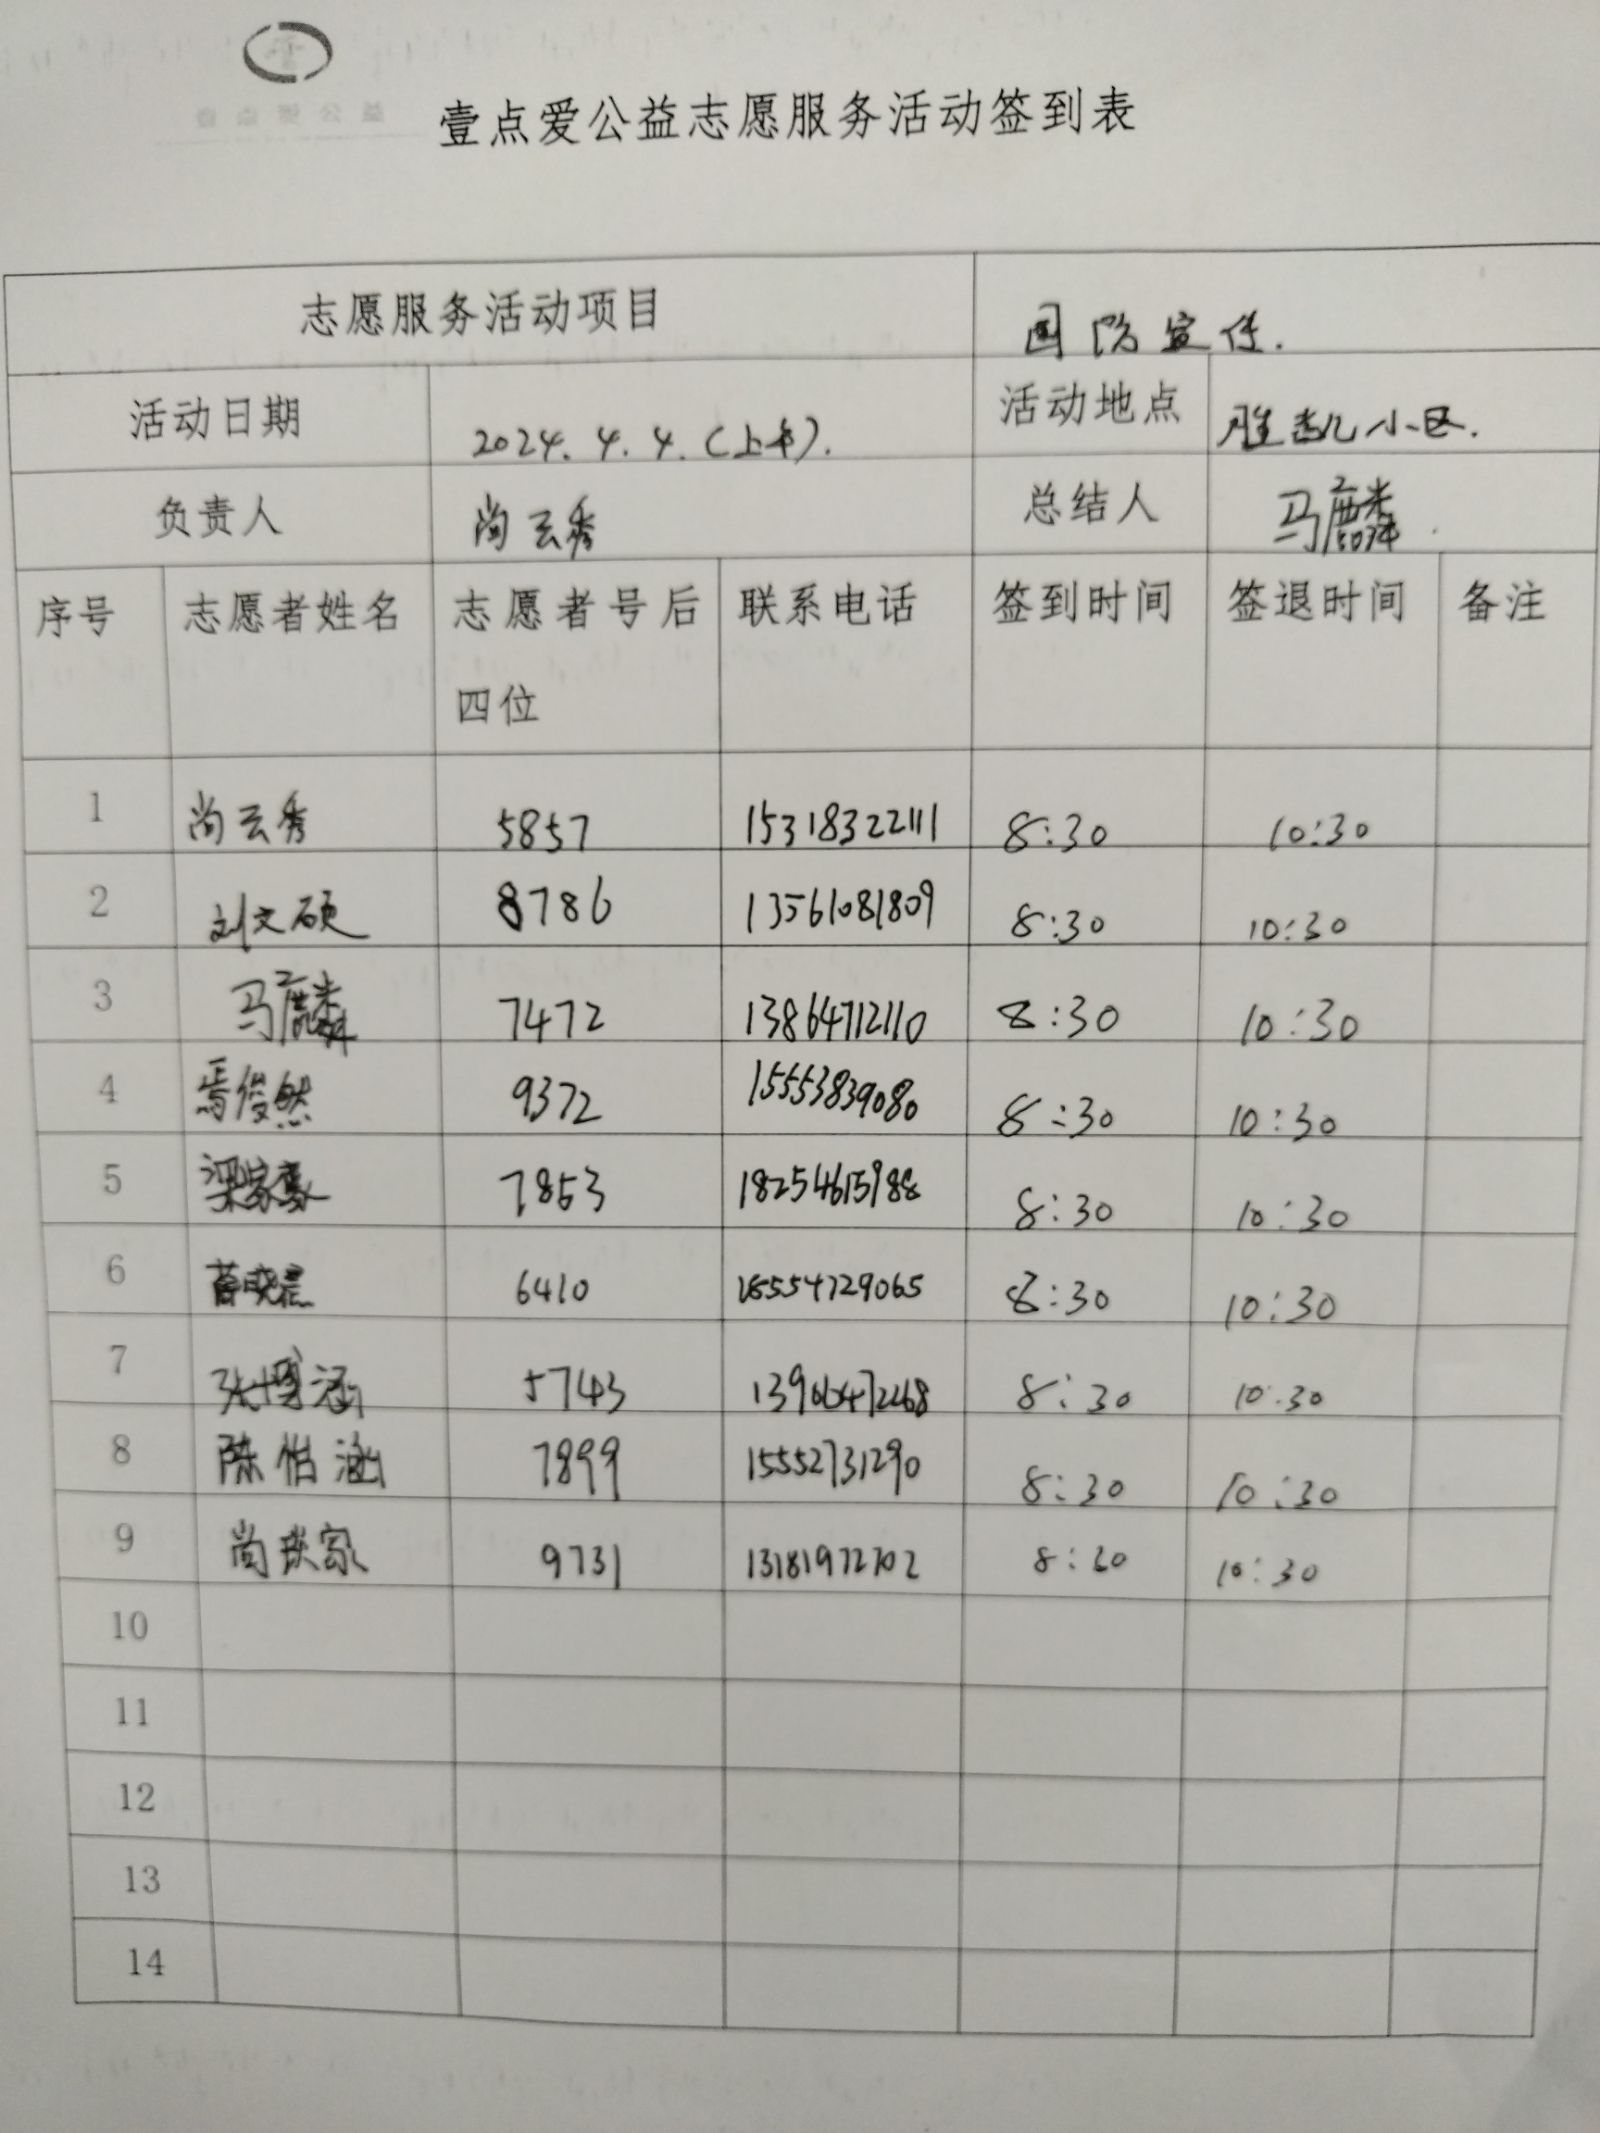 壹点爱公益志愿服务活动签到表
志愿服务活动项目 国防宣传.
活动日期 2024.4.4.(上午). 活动地点 胜凯小区.
负责人 尚云秀 总结人 马麟
序号 志愿者姓名 志愿者号后 联系电话 签到时间 签退时间 备注
四位
1 尚云秀 5857 15318322111 8:30 10:30
2 刘文硕 8786 13561081809 8:30 10:30
3 马麟 7472 13864712110 8:30 10:30
4 焉俊然 9372 15553839080 8:30 10:30
5 梁家豪 7853 18254615988 8:30 10:30
6 薛晓晨 6410 18554729065 8:30 10:30
7 张博涵 5743 8:30 10:30
8 陈怡涵 7899 15552731290 8:30 10:30
9 尚 家 9731 13181972702 8:30 10:30
10
11
12
13
14